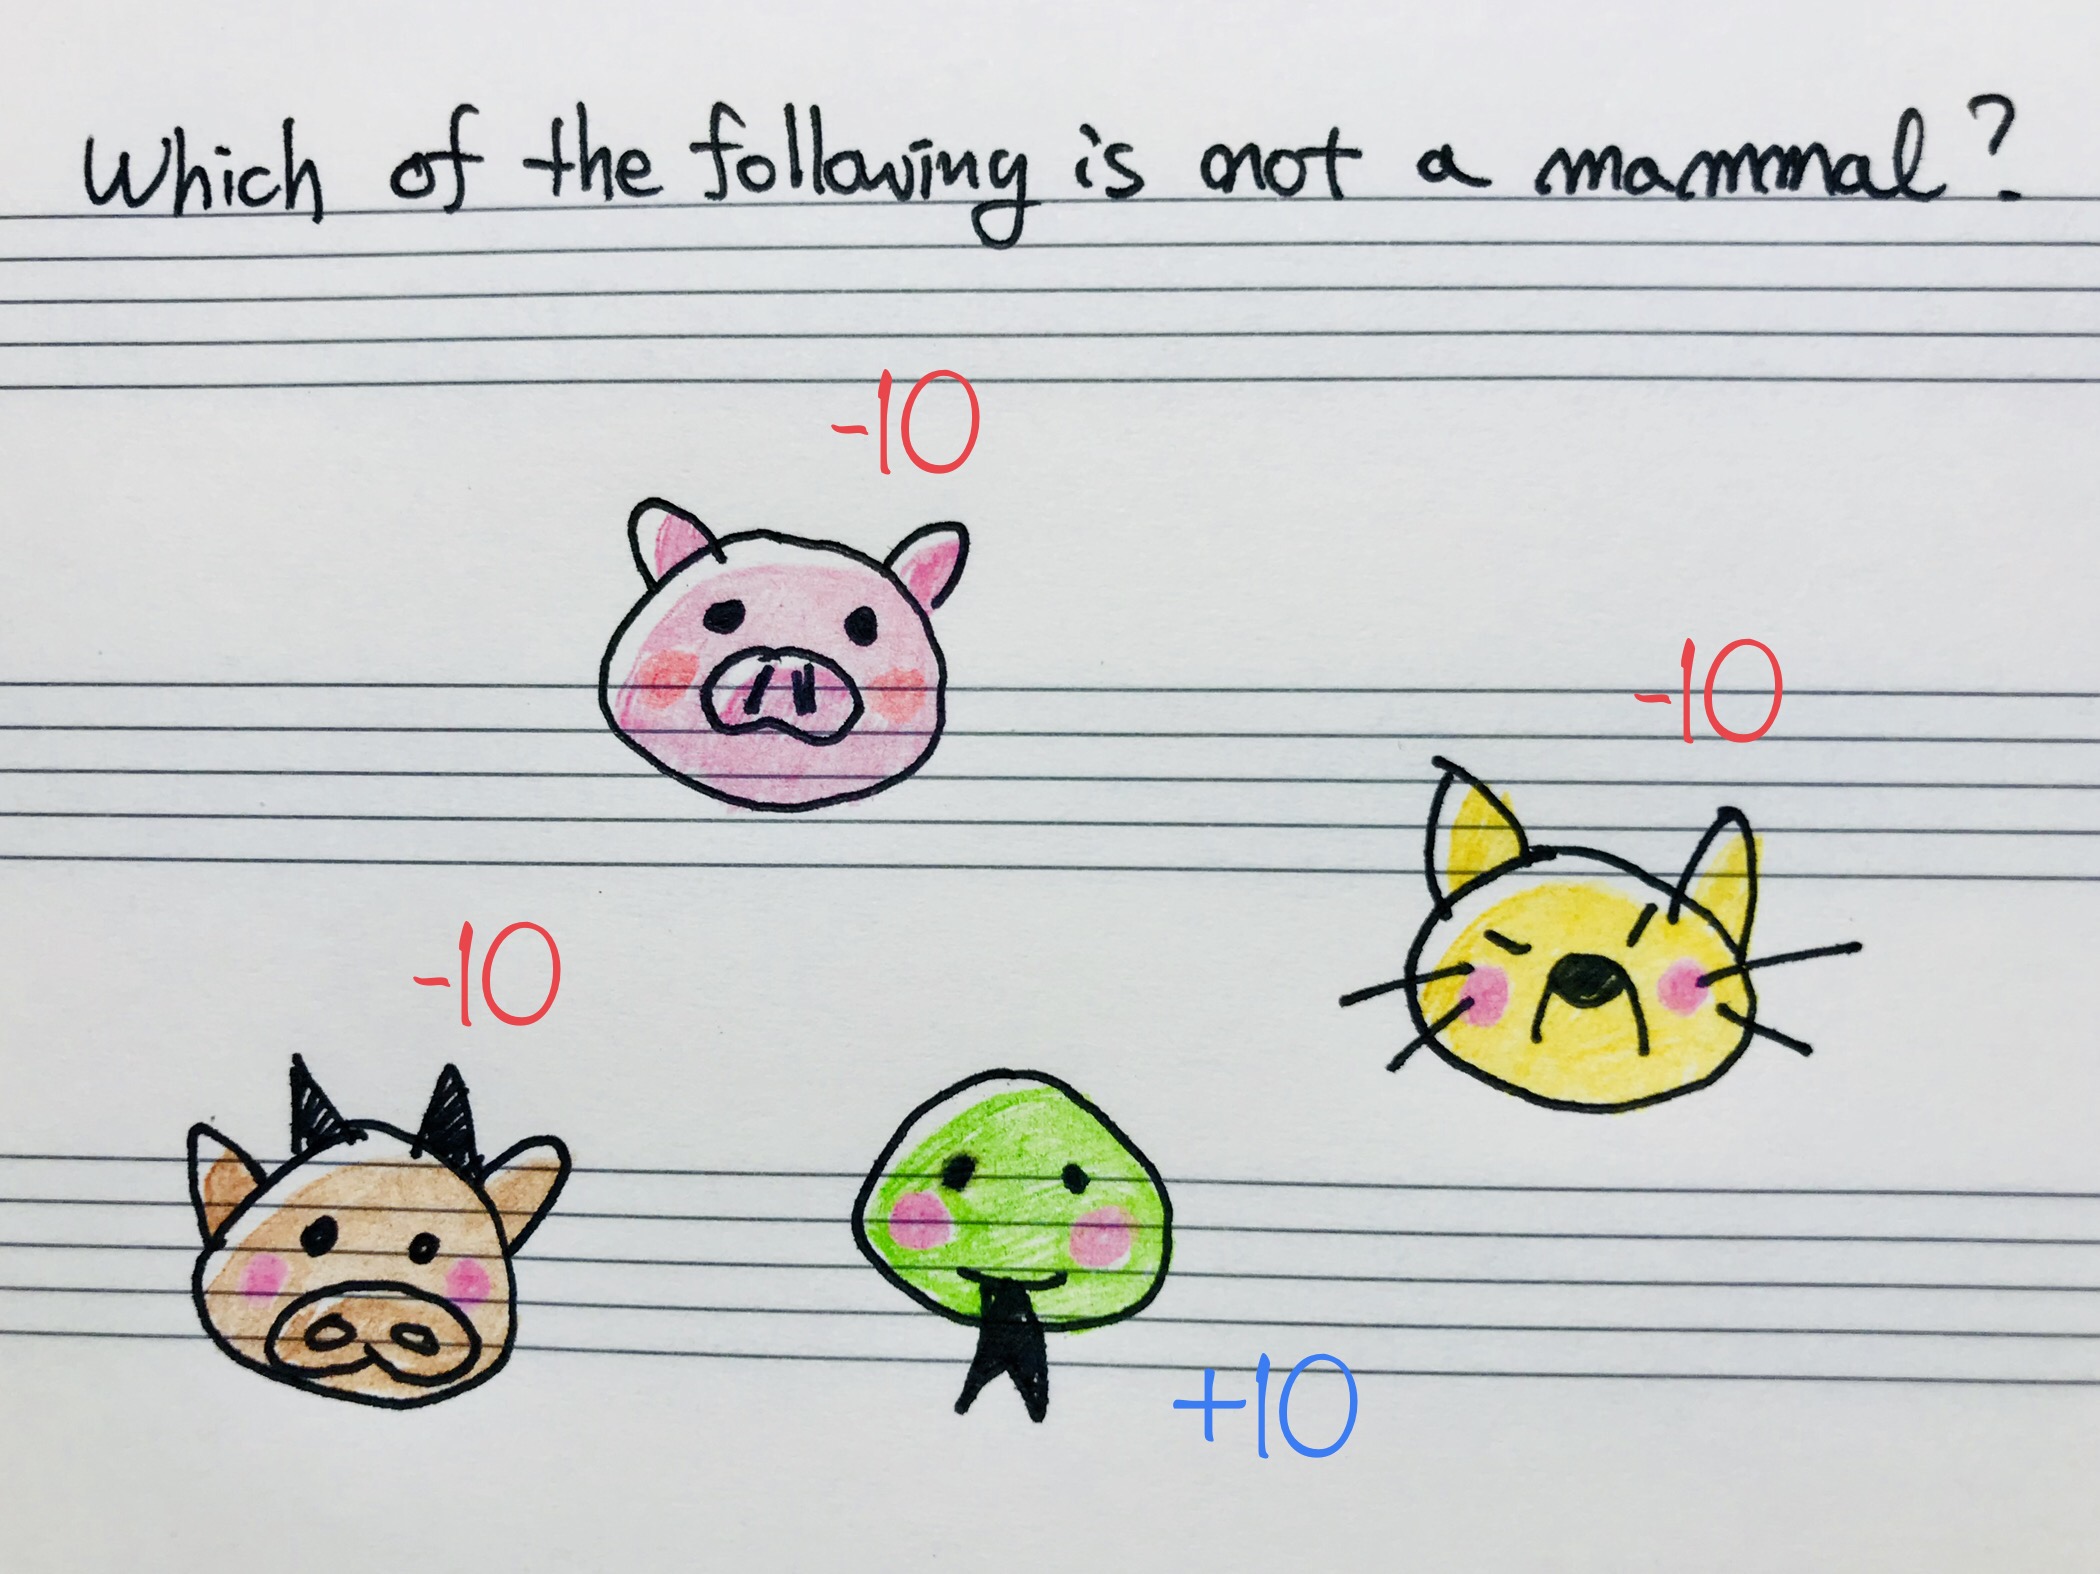 Which of the following is not a mammal?
-10
-10
-10
+10